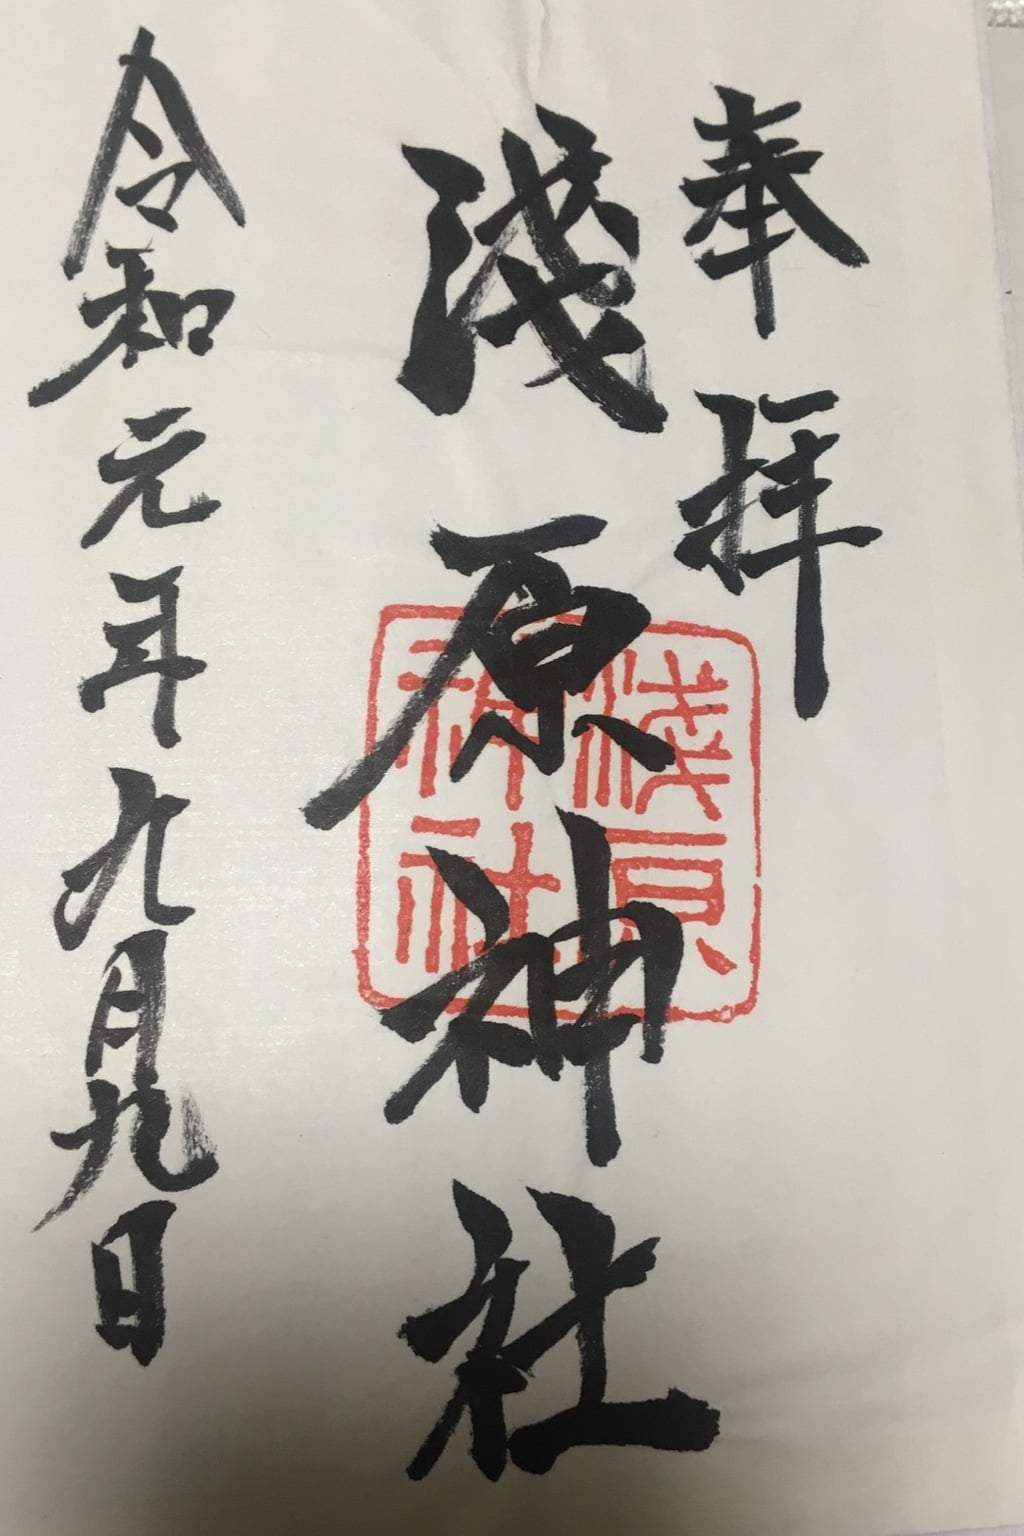 奉拝
淺原神社
淺原
神社
令和元年九月九日